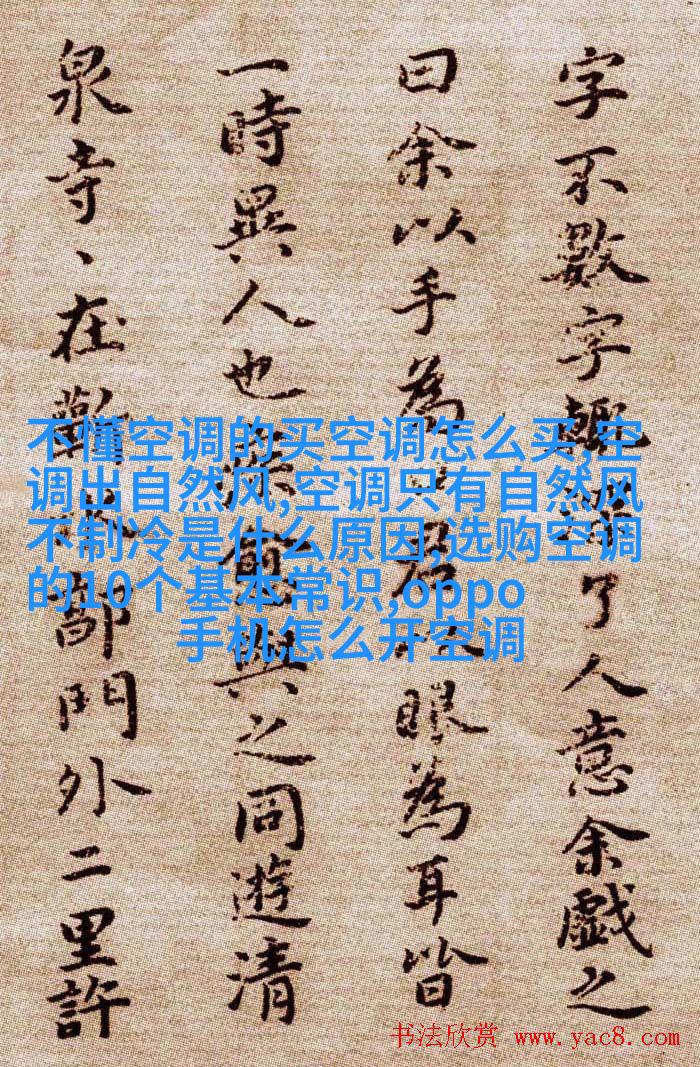 字不數字輒了人意余戲之
曰余以手為君以眼為耳皆
一時異人也疾愈與之同遊清
泉寺、在蘄郭門外二里許
不懂空调的买空调怎么买,空
调出自然风,空调只有自然风
不制冷是什么原因,选购空调
的10个基本常识,oppo
手机怎么开空调
书法欣赏 www.yac8.com